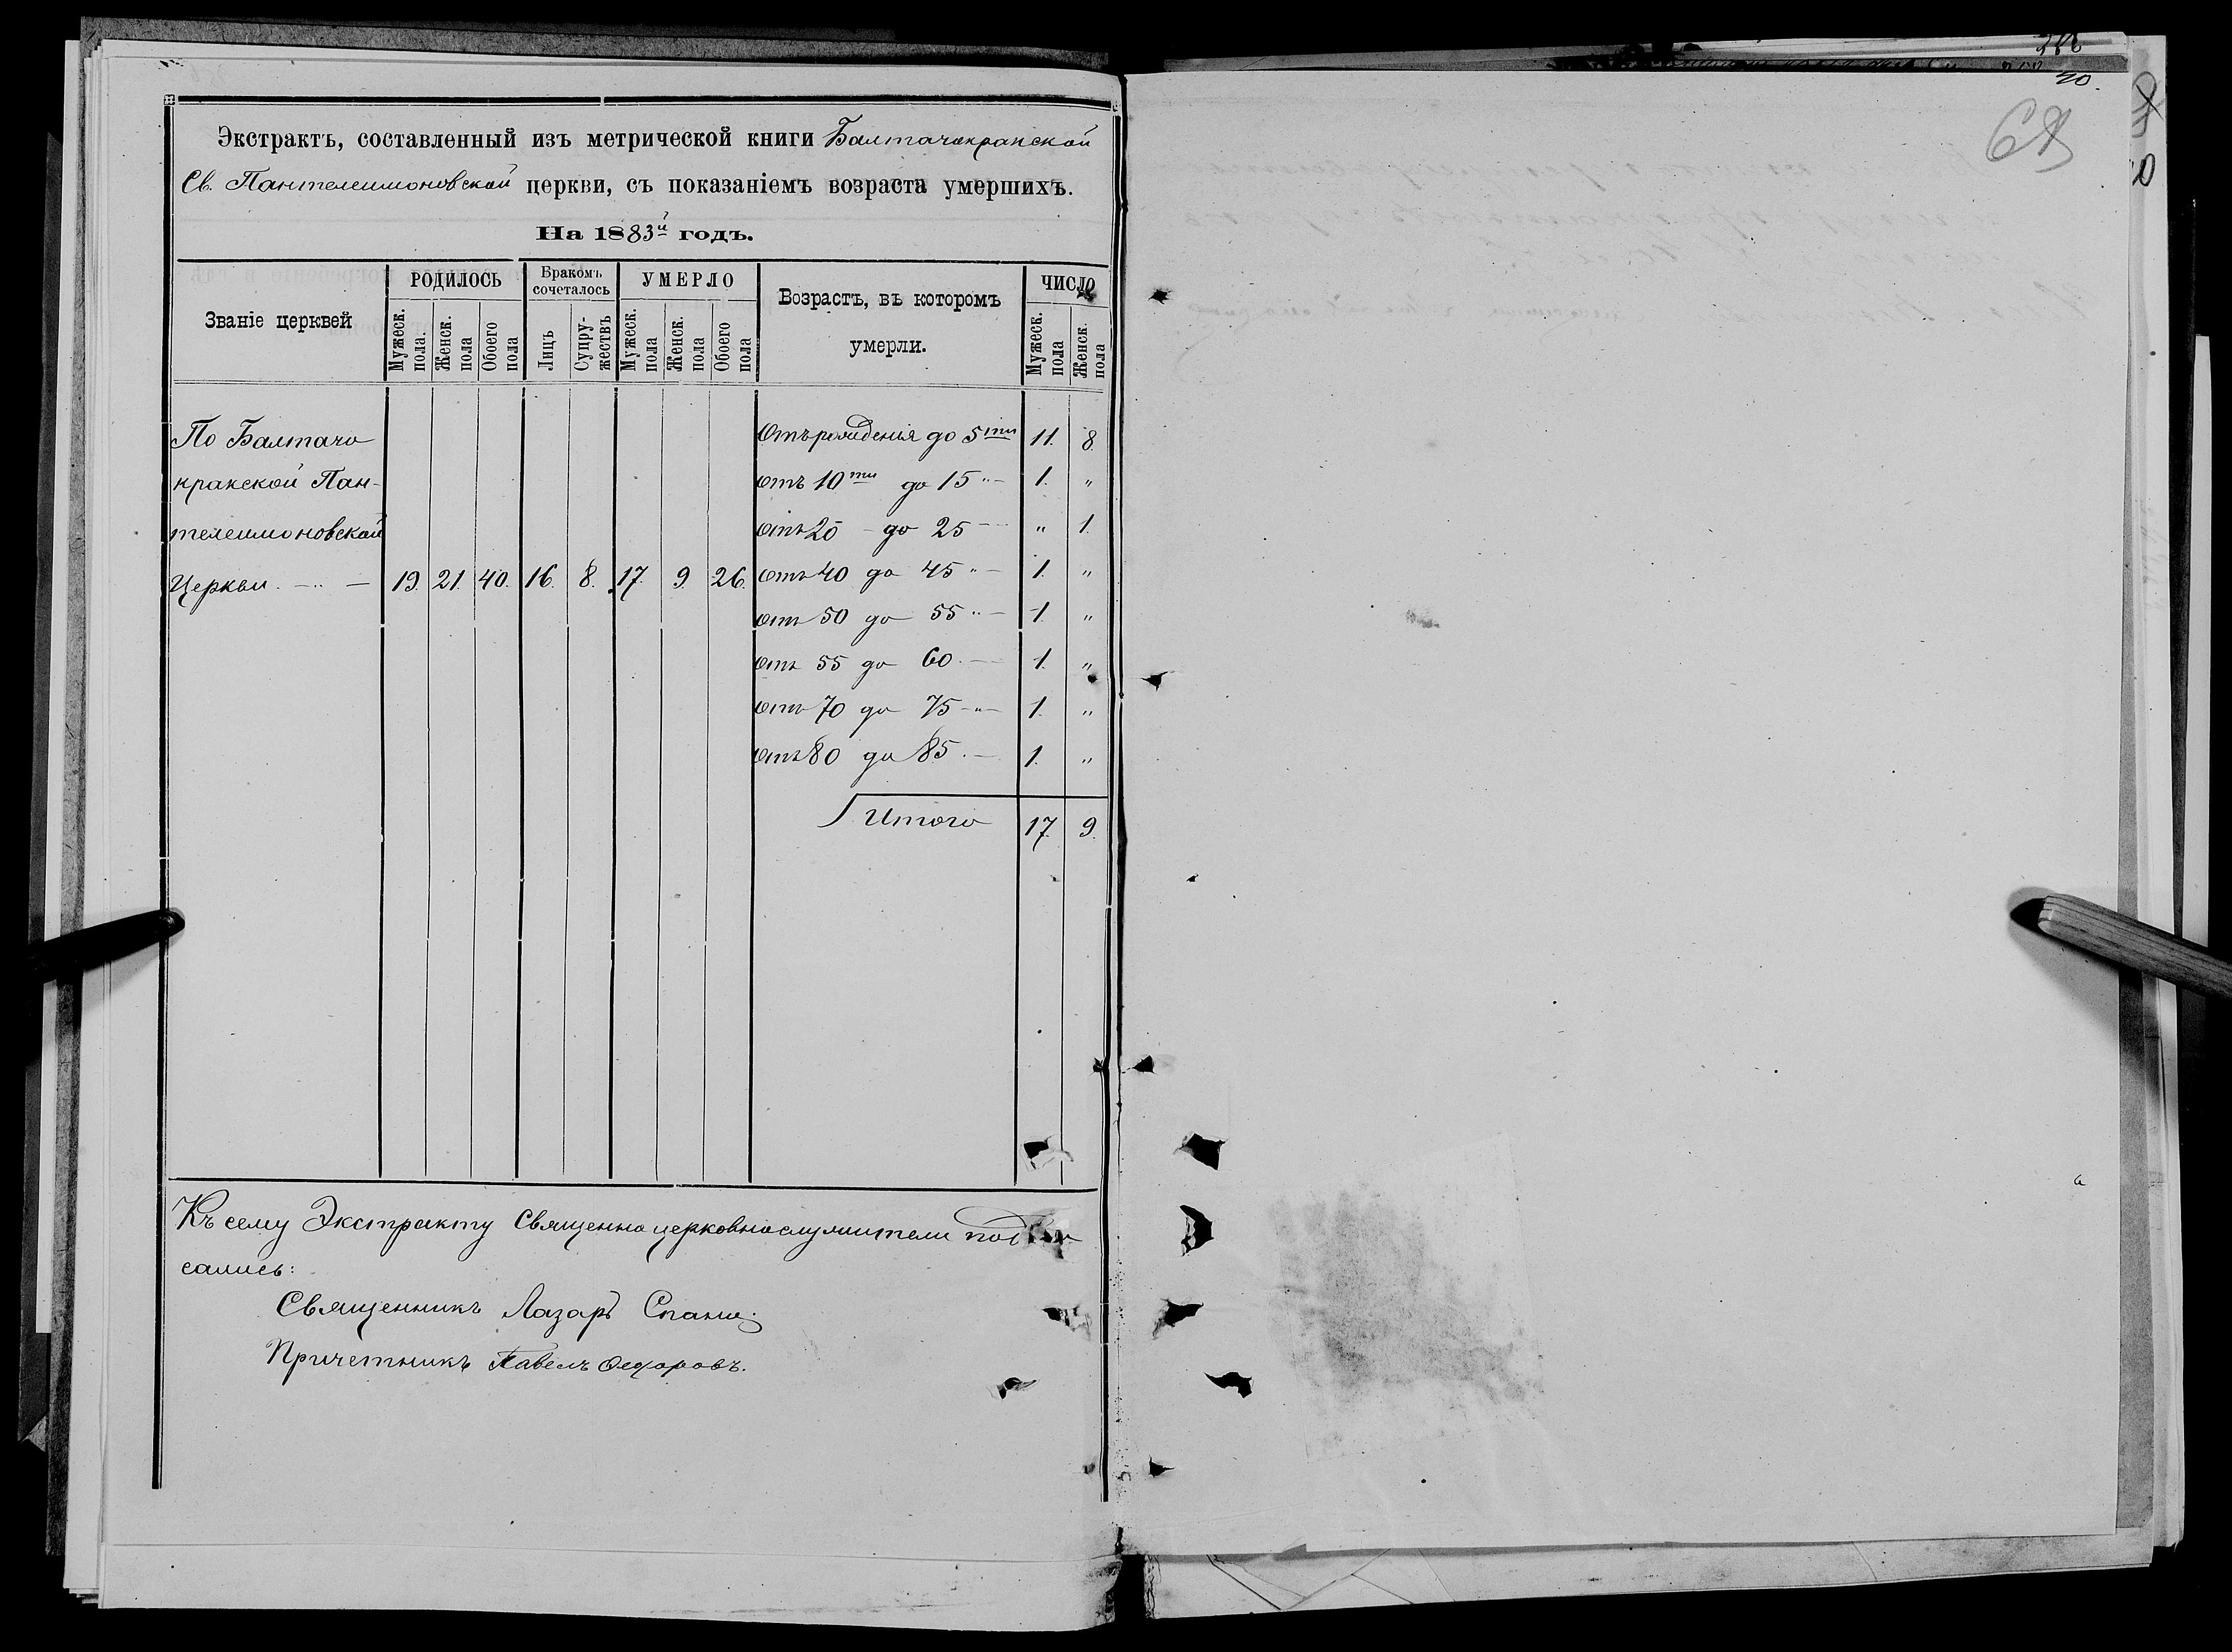 Экстрактъ, составленный изъ метрической книги Балтачокракской
Св. Пантелеимоновской церкви, съ показаніемъ возраста умершихъ.
На 1883й годъ.
Званіе церквей
РОДИЛОСЬ
Мужеск. пола.
Женск. пола
Обоего пола
Бракомъ сочеталось
Лицъ
Супружествъ
УМЕРЛО
Мужеск. пола
Женск. пола
Обоего пола
Возрастъ, въ которомъ умерли.
ЧИСЛО
Мужеск. пола
Женск. пола
По Балтачо
кракской Пан-
телеимоновской
Церкви. — 19. 21. 40. 16. 8. 17. 9. 26.
Отъ рожденія до 5ти 11. 8.
отъ 10ти до 15 " — 1. "
отъ 20 — до 25 — " 1.
отъ 40 до 45 " — 1. "
отъ 50 до 55 " — 1. "
отъ 55 до 60 — 1. "
отъ 70 до 75 -"- 1. "
отъ 80 до 85 — 1. "
Итого 17. 9.
Къ сему Экстракту Священно церковнослужители под
сались:
Священникъ Лазарь
Причетникъ Павелъ Ѳедоровъ.
30.